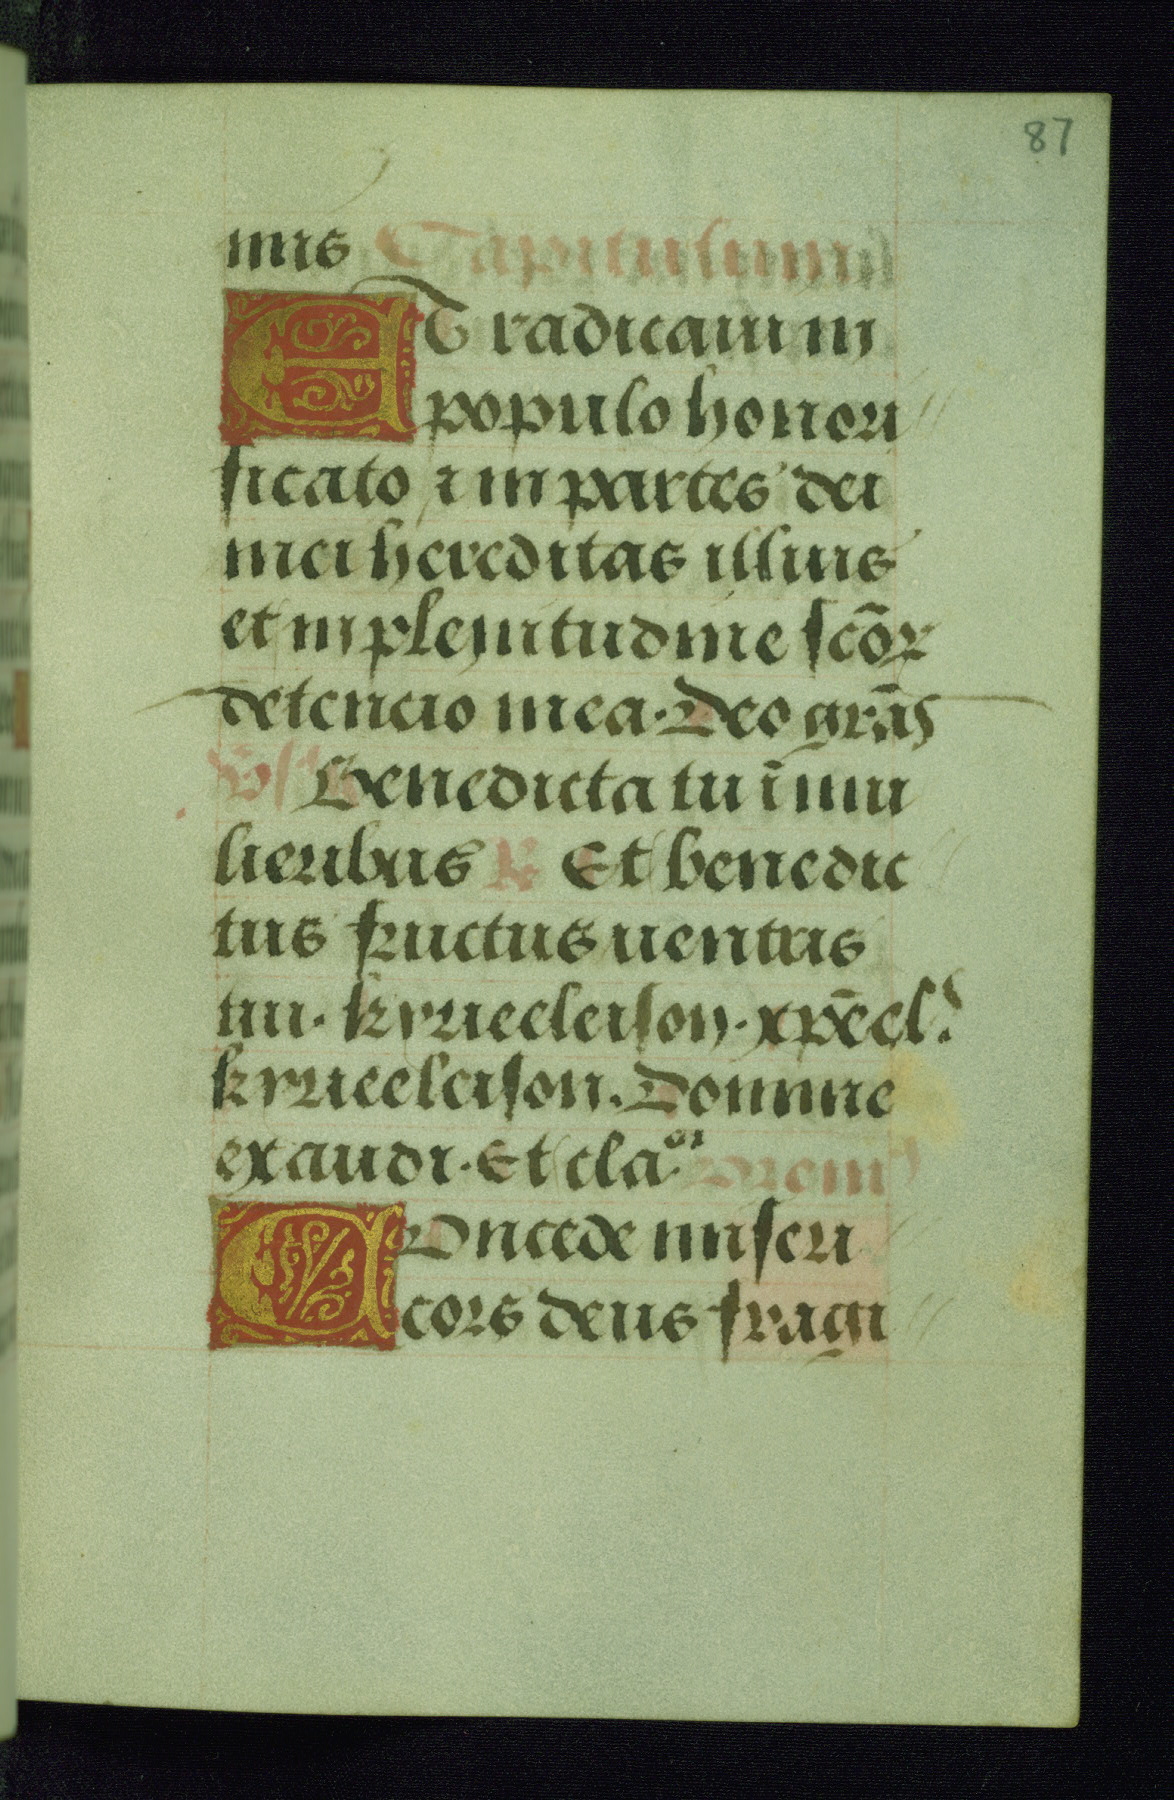 87
mis Capitulum
ET radicaui in
populo honori
ficato ⁊ in partes dei
mei hereditas illius
et in plenitudine scōꝝ
detencio mea. Deo grās
Benedicta tu ī mu
lieribus ℟ Et benedic
tus fructus uentris
tui. kyrieeleison. xpēel.
kyrieeleison. Domine
exaudi. Et cla.or
COncede miseri
cors deus fragi